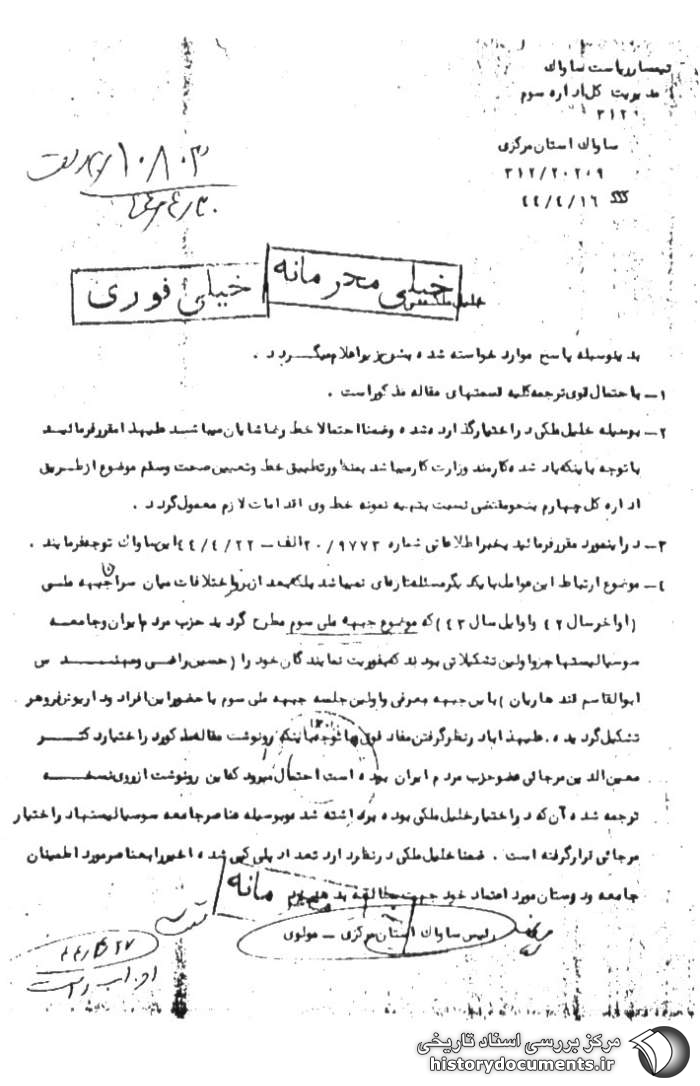 تیمسار ریاست ساواک
مدیریت کل اداره سوم
۳۱۲۱
ساواک استان مرکزی
۳۱۲/۲۰۲۰۹
۴۴/۴/۱۶
۱۰۸۰۳
۴۴/۴/۲۰
خیلی محرمانه
خیلی فوری
خلیل ملکی
بدینوسیله پاسخ موارد خواسته شده بشرح زیر اعلام میگردد .
۱ــ باحتمال قوی ترجمه کلیه قسمتهای مقاله مذکور است .
۲ــ بوسیله خلیل ملکی در اختیار گذارده شده و ضمنا احتمالا خط رضا شایان میباشد علیهذا مقرر فرمائید
با توجه باینکه یاد شده کارمند وزارت کار میباشد بمنظور تطبیق خط و تعیین صحت و سقم موضوع از طریق
اداره کل چهارم بنحو مقتضی نسبت بتهیه نمونه خط وی اقدامات لازم معمول گردد .
۳ــ در اینمورد مقرر فرمائید بخبر اطلاعاتی شماره ۲۰/۹۷۷۳ الف ــ ۴۴/۴/۲۲ این ساواک توجه فرمایند .
۴ــ موضوع ارتباط این عوامل با یکدیگر مسئله تازه‌ای نمیباشد بلکه بعد از بروز اختلافات میان سران جبهه ملی
(اواخر سال ۴۲ و اوایل سال ۴۳) که موضوع جبهه ملی سوم مطرح گردید حزب مردم ایران و جامعه
سوسیالیستها جزو اولین تشکیلاتی بودند که بفوریت نمایندگان خود را (حسین راضی و مهندس
ابوالقاسم قندهاریان) باین جبهه معرفی و اولین جلسه جبهه ملی سوم با حضور این افراد و داریوش فروهر
تشکیل گردیده . علیهذا با در نظر گرفتن مفاد فوق و با توجه باینکه رونوشت مقاله مذکور در اختیار دکتر
معین الدین مرجائی عضو حزب مردم ایران بوده است احتمال میرود که این رونوشت از روی نسخه
ترجمه شده آن که در اختیار خلیل ملکی بوده برداشته شده و بوسیله عناصر جامعه سوسیالیستها در اختیار
مرجائی قرار گرفته است . ضمنا خلیل ملکی در نظر دارد تعداد پلی کپی شده اخیر را بعناصر مورد اطمینان
جامعه و دوستان مورد اعتماد خود جهت مطالعه بدهد
رئیس ساواک استان مرکزی ــ مولوی
محرمانه
مرکز بررسی اسناد تاریخی
historydocuments.ir